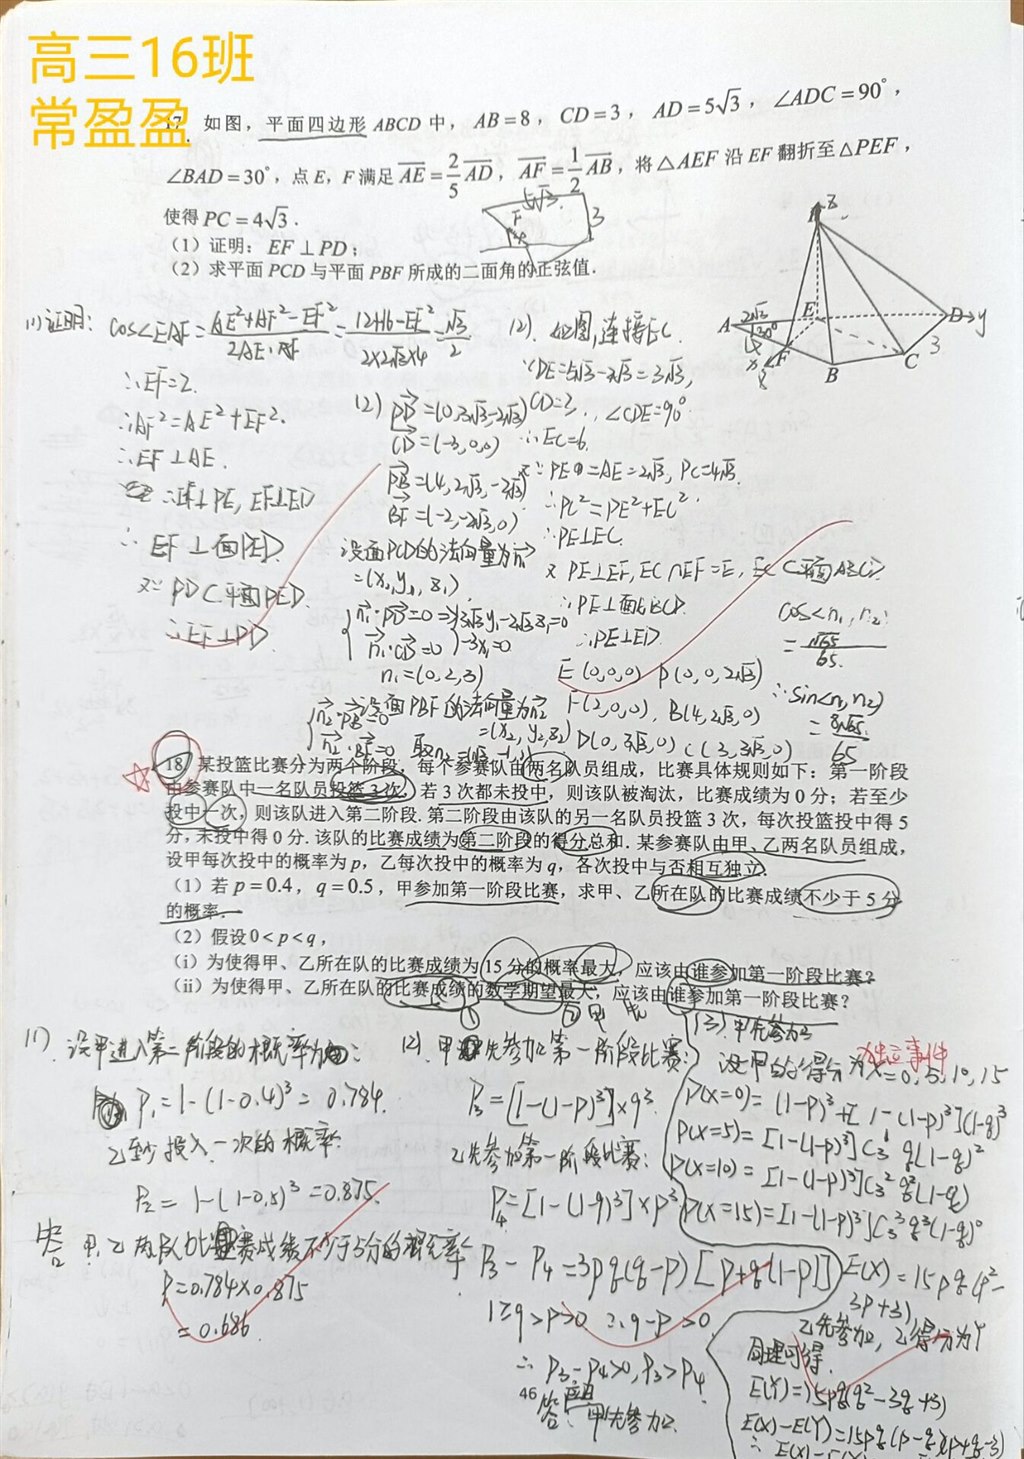 高三16班
常盈盈
17. 如图，平面四边形 ABCD 中，AB=8，CD=3，AD=5√3，∠ADC=90°，
∠BAD=30°，点 E，F 满足 AE=2/5 AD，AF=1/2 AB，将△AEF 沿 EF 翻折至△PEF，
使得 PC=4√3.
（1）证明：EF⊥PD；
（2）求平面 PCD 与平面 PBF 所成的二面角的正弦值.
5√3
F
3
z
A
2√3
30°
E
D
y
4
F
x
B
C
3
(1)证明: cos∠EAF=(AE²+AF²-EF²)/(2AE·AF)=(12+16-EF²)/(2×2√3×4)=√3/2
∴EF=2.
∴AF²=AE²+EF².
∴EF⊥AE.
∴EF⊥PE, EF⊥ED
∴EF⊥面PED
又∵PD⊂平面PED.
∴EF⊥PD.
(2). 如图,连接EC.
∵DE=5√3-2√3=3√3,
CD=3, ∠CDE=90°.
∴EC=6.
又∵PE=AE=2√3, PC=4√3.
∴PC²=PE²+EC².
∴PE⊥EC.
又PE⊥EF, EC∩EF=E, EC⊂平面ABCD
∴PE⊥面ABCD.
∴PE⊥ED.
E(0,0,0) P(0,0,2√3)
F(2,0,0), B(4,2√3,0)
D(0,3√3,0) C(3,3√3,0)
(2) PD=(0,3√3,-2√3)
CD=(-3,0,0)
PB=(4,2√3,-2√3)
BF=(-2,-2√3,0)
设面PCD的法向量为n₁
=(x₁,y₁,z₁)
n₁·PD=0⇒3√3y₁-2√3z₁=0
n₁·CD=0 -3x₁=0
n₁=(0,2,3)
设面PBF的法向量为n₂
=(x₂,y₂,z₂)
n₂·PB=0
n₂·BF=0 取n₂=(√3,-1,1)
cos<n₁,n₂>
=√65/65.
∴sin<n₁,n₂>
=8√65/65
18. 某投篮比赛分为两个阶段，每个参赛队由两名队员组成，比赛具体规则如下：第一阶段
由参赛队中一名队员投篮 3 次，若 3 次都未投中，则该队被淘汰，比赛成绩为 0 分；若至少
投中一次，则该队进入第二阶段. 第二阶段由该队的另一名队员投篮 3 次，每次投篮投中得 5
分，未投中得 0 分. 该队的比赛成绩为第二阶段的得分总和. 某参赛队由甲、乙两名队员组成，
设甲每次投中的概率为 p，乙每次投中的概率为 q，各次投中与否相互独立.
（1）若 p=0.4，q=0.5，甲参加第一阶段比赛，求甲、乙所在队的比赛成绩不少于 5 分
的概率.
（2）假设 0<p<q，
（i）为使得甲、乙所在队的比赛成绩为 15 分的概率最大，应该由谁参加第一阶段比赛？
（ii）为使得甲、乙所在队的比赛成绩的数学期望最大，应该由谁参加第一阶段比赛？
①
②甲
独立事件
(1). 设甲进入第二阶段的概率为:
P₁=1-(1-0.4)³=0.784.
乙至少投入一次的概率:
P₂=1-(1-0.5)³=0.875.
答: 甲、乙两队比赛成绩不少于5分的概率
P=0.784×0.875
=0.686.
(2). 甲先参加第一阶段比赛:
P₃=[1-(1-p)³]×q³.
乙先参加第一阶段比赛:
P₄=[1-(1-q)³]×p³
P₃-P₄=3pq(q-p)[p+q(1-p)]
1≥q>p>0 ∴q-p>0
∴P₃-P₄>0, P₃>P₄.
答: 甲先参加.
(3) 甲先参加
设甲的得分为X=0,5,10,15
P(X=0)=(1-p)³+[1-(1-p)³](1-q)³
P(X=5)=[1-(1-p)³]C₃¹q(1-q)²
P(X=10)=[1-(1-p)³]C₃²q²(1-q)
P(X=15)=[1-(1-p)³]C₃³q³(1-q)⁰
E(X)=15pq(p²-
3p+3)
乙先参加, 乙得分为Y
同理可得.
E(Y)=15pq(q²-3q+3)
E(X)-E(Y)=15pq(p-q)(p+q-3)
46